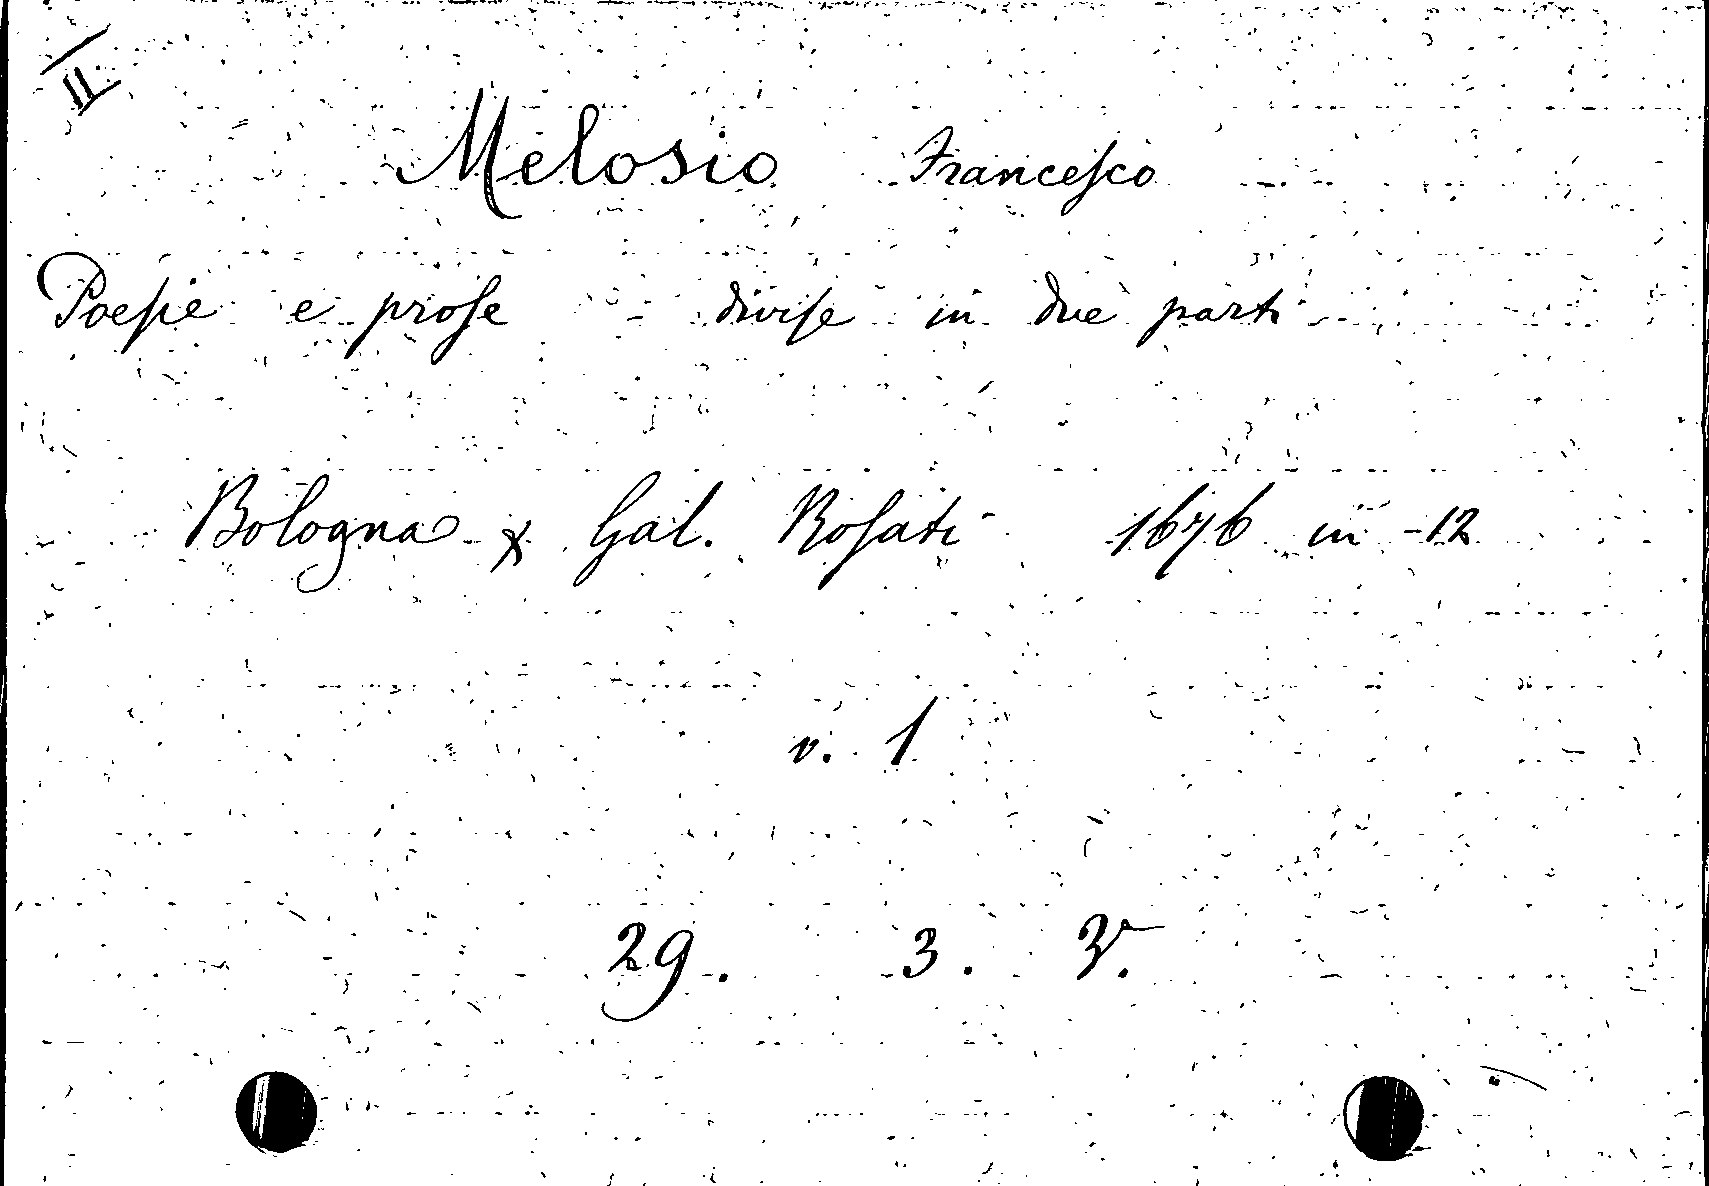 II
Melosio Francesco
Poesie e prose - divise in due parti
Bologna x Gal. Rosati 1676 in -12
v. 1
29. 3. V.